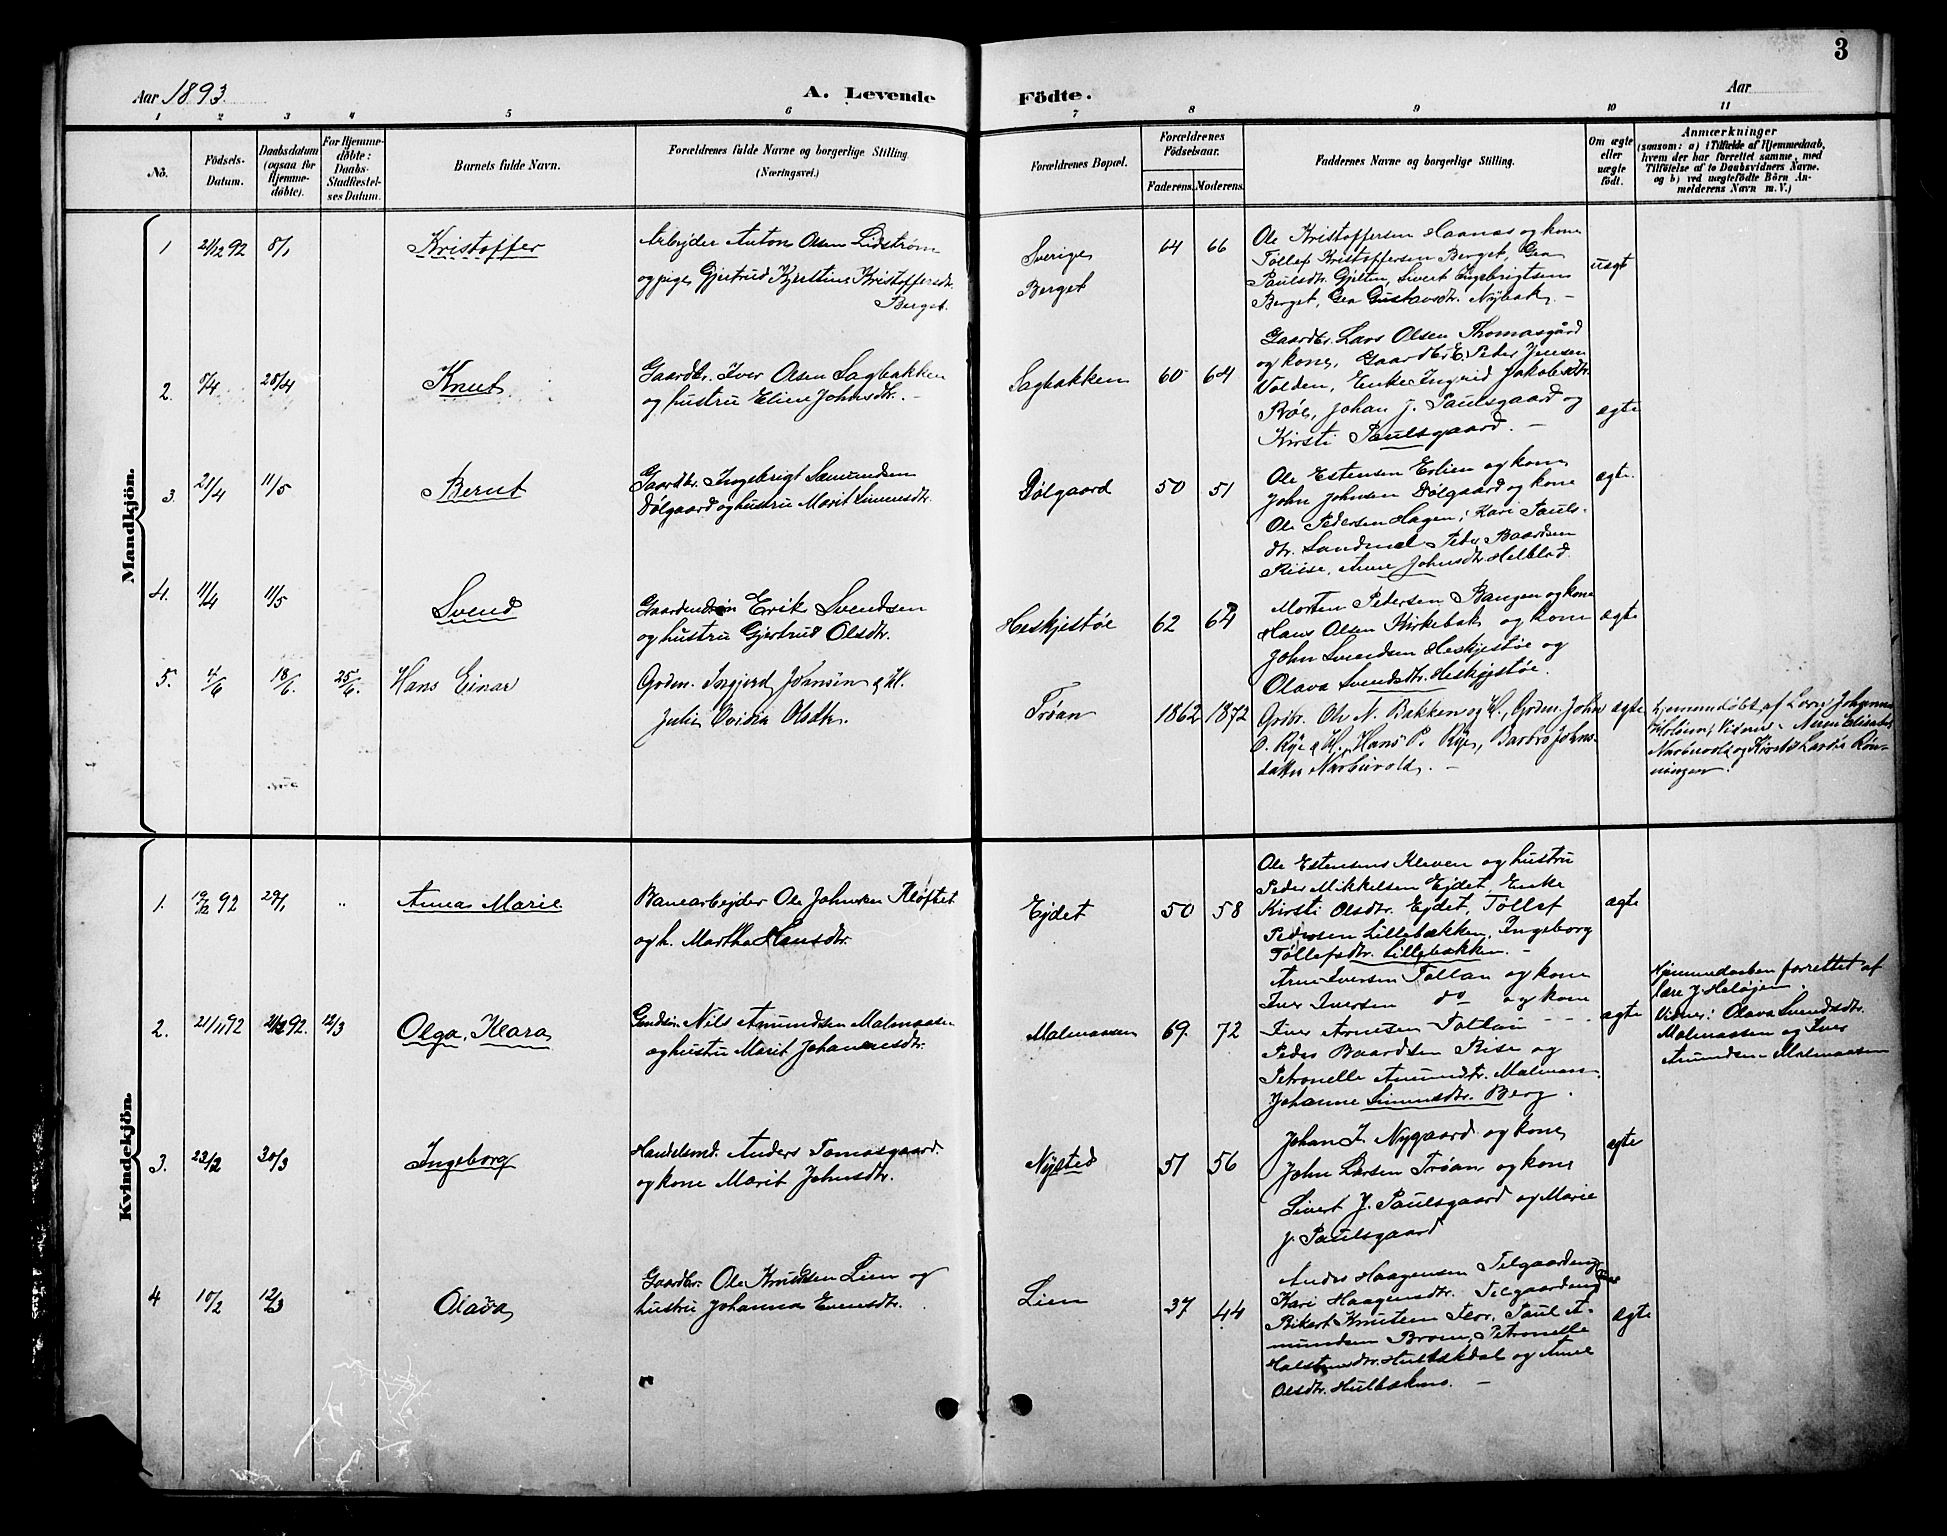 3
Aar 1893
A. Levende Födte.
Aar
1 2 3 4 5 6 7 8 9 10 11
No.
Födsels-
Datum.
Daabsdatum
(ogsaa for
Hjemme-
döbte).
For Hjemme-
döbte:
Daabs-
Stadfæstel-
ses Datum.
Barnets fulde Navn.
Forældrenes fulde Navne og borgerlige Stilling
(Næringsvei.)
Forældrenes Bopæl.
Forældrenes
Födselsaar.
Faderens.
Moderens.
Faddernes Navne og borgerlige Stilling.
Om ægte
eller
uægte
födt.
Anmærkninger
(saasom: a) i Tilfælde af Hjemmedaab,
hvem der har forrettet samme, med
Tilföielse af to Daabsvidners Navne.
og b) ved uægtefödte Börn An-
melderens Navn m. V.)
Mandkjön.
1 21/12 92 8/1
Kristoffer
Arbejder Anton Olsen Lidström
og pige Gjertrud Kjerstine Kristoffersdtr.
Berget.
Sverige
Berget
64 66
Ole Kristoffersen Haanæs og kone
Tollef Kristoffersen Berget, Gea
Paulsdtr. Gjelten, Sivert Ingebrigtsen
Berget, Gea Gustavsdtr. Nybak. –
uægt
2. 5/4 28/4
Knut
Gaardbr. Iver Olsen Sagbakken
og hustru Eline Johnsdtr. –
Sagbakken
60 64
Gaardbr. Lars Olsen Thomasgård
og kone, Gaardbr. E. Peder Jensen
Volden, Enke Ingrid Jakobsdtr.
Röe, Johan J. Paulsgaard og
Kirsti Paulsgaard. –
ægte
3. 21/4 11/5
Bernt
Gaardbr. Ingebrigt Simundsen
Dölgaard og hustru Marit Simensdtr.
Dölgaard
50 51
Ole Estensen Erlien og kone
John Johnsen Dölgaard og kone
Ole Pedersen Hagen, Kari Pauls-
dtr. Sandmæl Peder Baardsen
Riise, Anne Johnsdtr.
ægte.
4. 11/4 11/5
Svend
Gaardmdsön Erik Svendsen
og hustru Gjertrud Olsdtr.
Heskjestöe
62 64
Morten Pedersen Bangen og kone
Hans Olsen Kirkebak og kone
John Svendsen Heskjestöe og
Olava Svendsdtr. Heskjestöe.
ægte
5. 4/6 18/6. 25/6.
Hans Einar
Grdm. Ingjerd Johnsen & H.
Julie Ovidia Olsdtr.
Tröan
1862 1872
Grdbr. Ole N. Bakken og H., Grdm. John
O. Rye & H. Hans P. Rye, Barbro Johns-
datter Narbuvold. –
ægte
Hjemmedöbt af Lærer Johannes
Holien; Vidner: Anne Elisabet
Narbuvold og Kirstie Larsdtr Rön-
ningen.
Kvindekjön.
1. 19/12 92 29/1 "
Anna Marie
Banearbejder Ole Johnsen Klöftet
og h. Marthe Hansdtr.
Ejdet
50 58
Ole Estensens Kleven og hustru
Peder Mikkelsen Ejdet, Enke
Kirsti Olsdtr. Ejdet, Tollef
Pedersen Lillebækken, Ingeborg
Töllefsdtr. Lillebækken. –
ægte
2. 21/11 92 21/12 92. 12/3
Olga, Klara
Gmdsön. Nils Amundsen Malmaasen
og hustru Marit Johannesdtr.
Malmaasen
69. 72
Arne Iversen Tollan og kone
Iver Iversen do og kone
Iver Arnesen Tollan
Peder Baardsen Riise og
Petronelle Amundtr. Malmaas.
Johanne Simensdtr. Berg.
ægte
Hjemmedaaben forrettet af
lære J Helöjen.
Vidner: Olava Svendsdtr.
Malmaasen og Iver
Amundsen Malmaasen
3. 23/2 30/3
Ingeborg
Handelsmd. Anders Tomasgaard.
og kone Marit Johnsdtr.
Nysted
51 56
Johan J. Nygaard og kone
John Larsen Tröan og kone
Sivert J. Paulsgaard og Marie
J. Paulsgaard
ægte
4 10/2 12/3
Olava
Gaardbr. Ole Knudsen Lien og
hustru Johanna Evensdtr.
Lien
37 44
Anders Haagensen Telgaardeng
Kari Haagensdtr. Telgaardeng
Bikert Knutsen Floor, Paul A-
mundsen Broen, Petronelle
Halstensdtr. Hulbækdal og Anne
Olsdtr. Hulbækmo. –
ægte